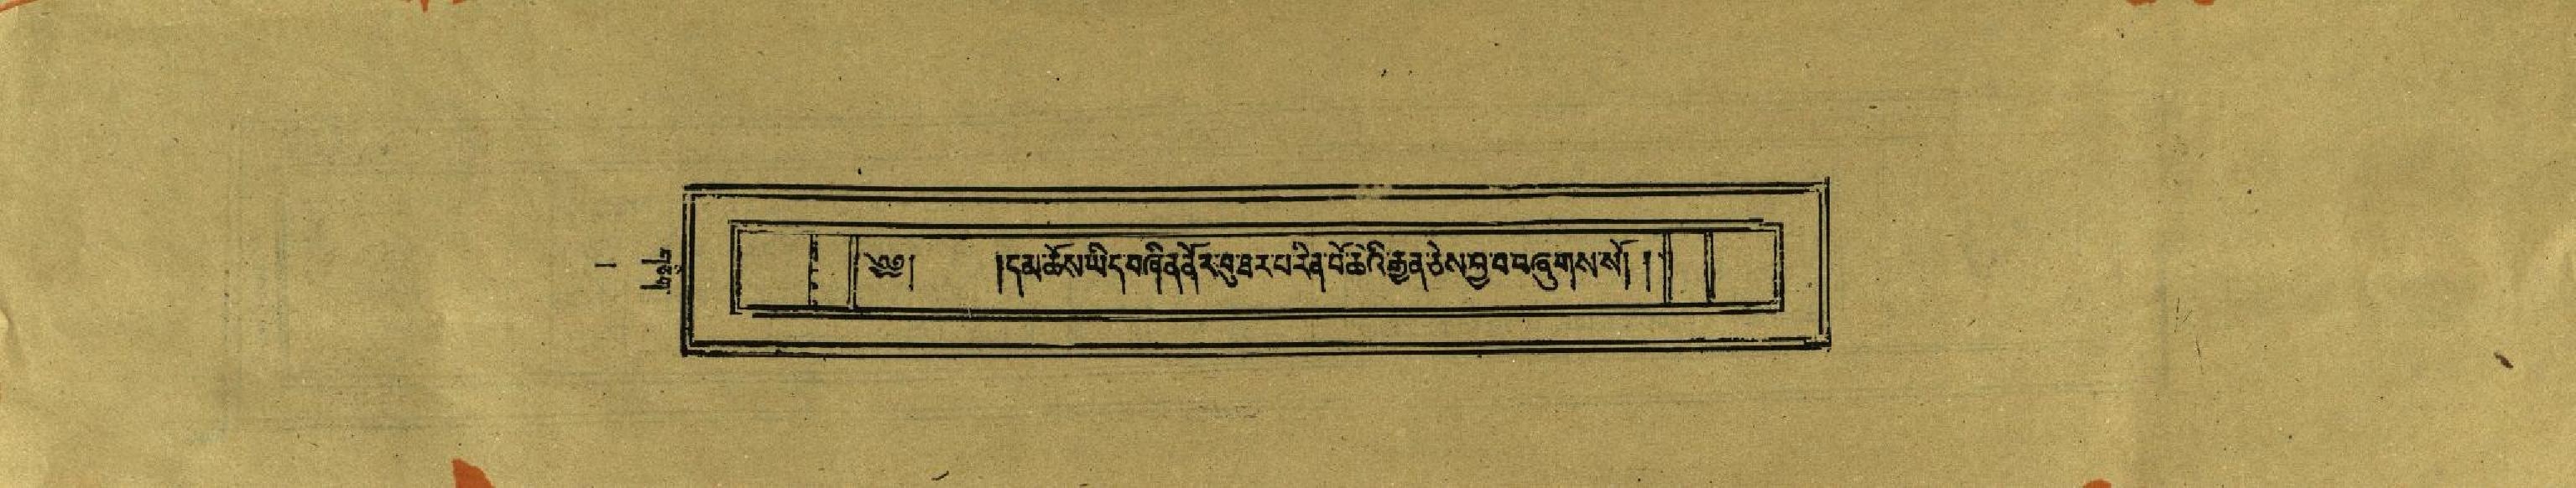 ༄༅། །དམ་ཆོས་ཡིད་བཞིན་ནོར་བུ་ཐར་པ་རིན་པོ་ཆེའི་རྒྱན་ཅེས་བྱ་བ་བཞུགས་སོ། །